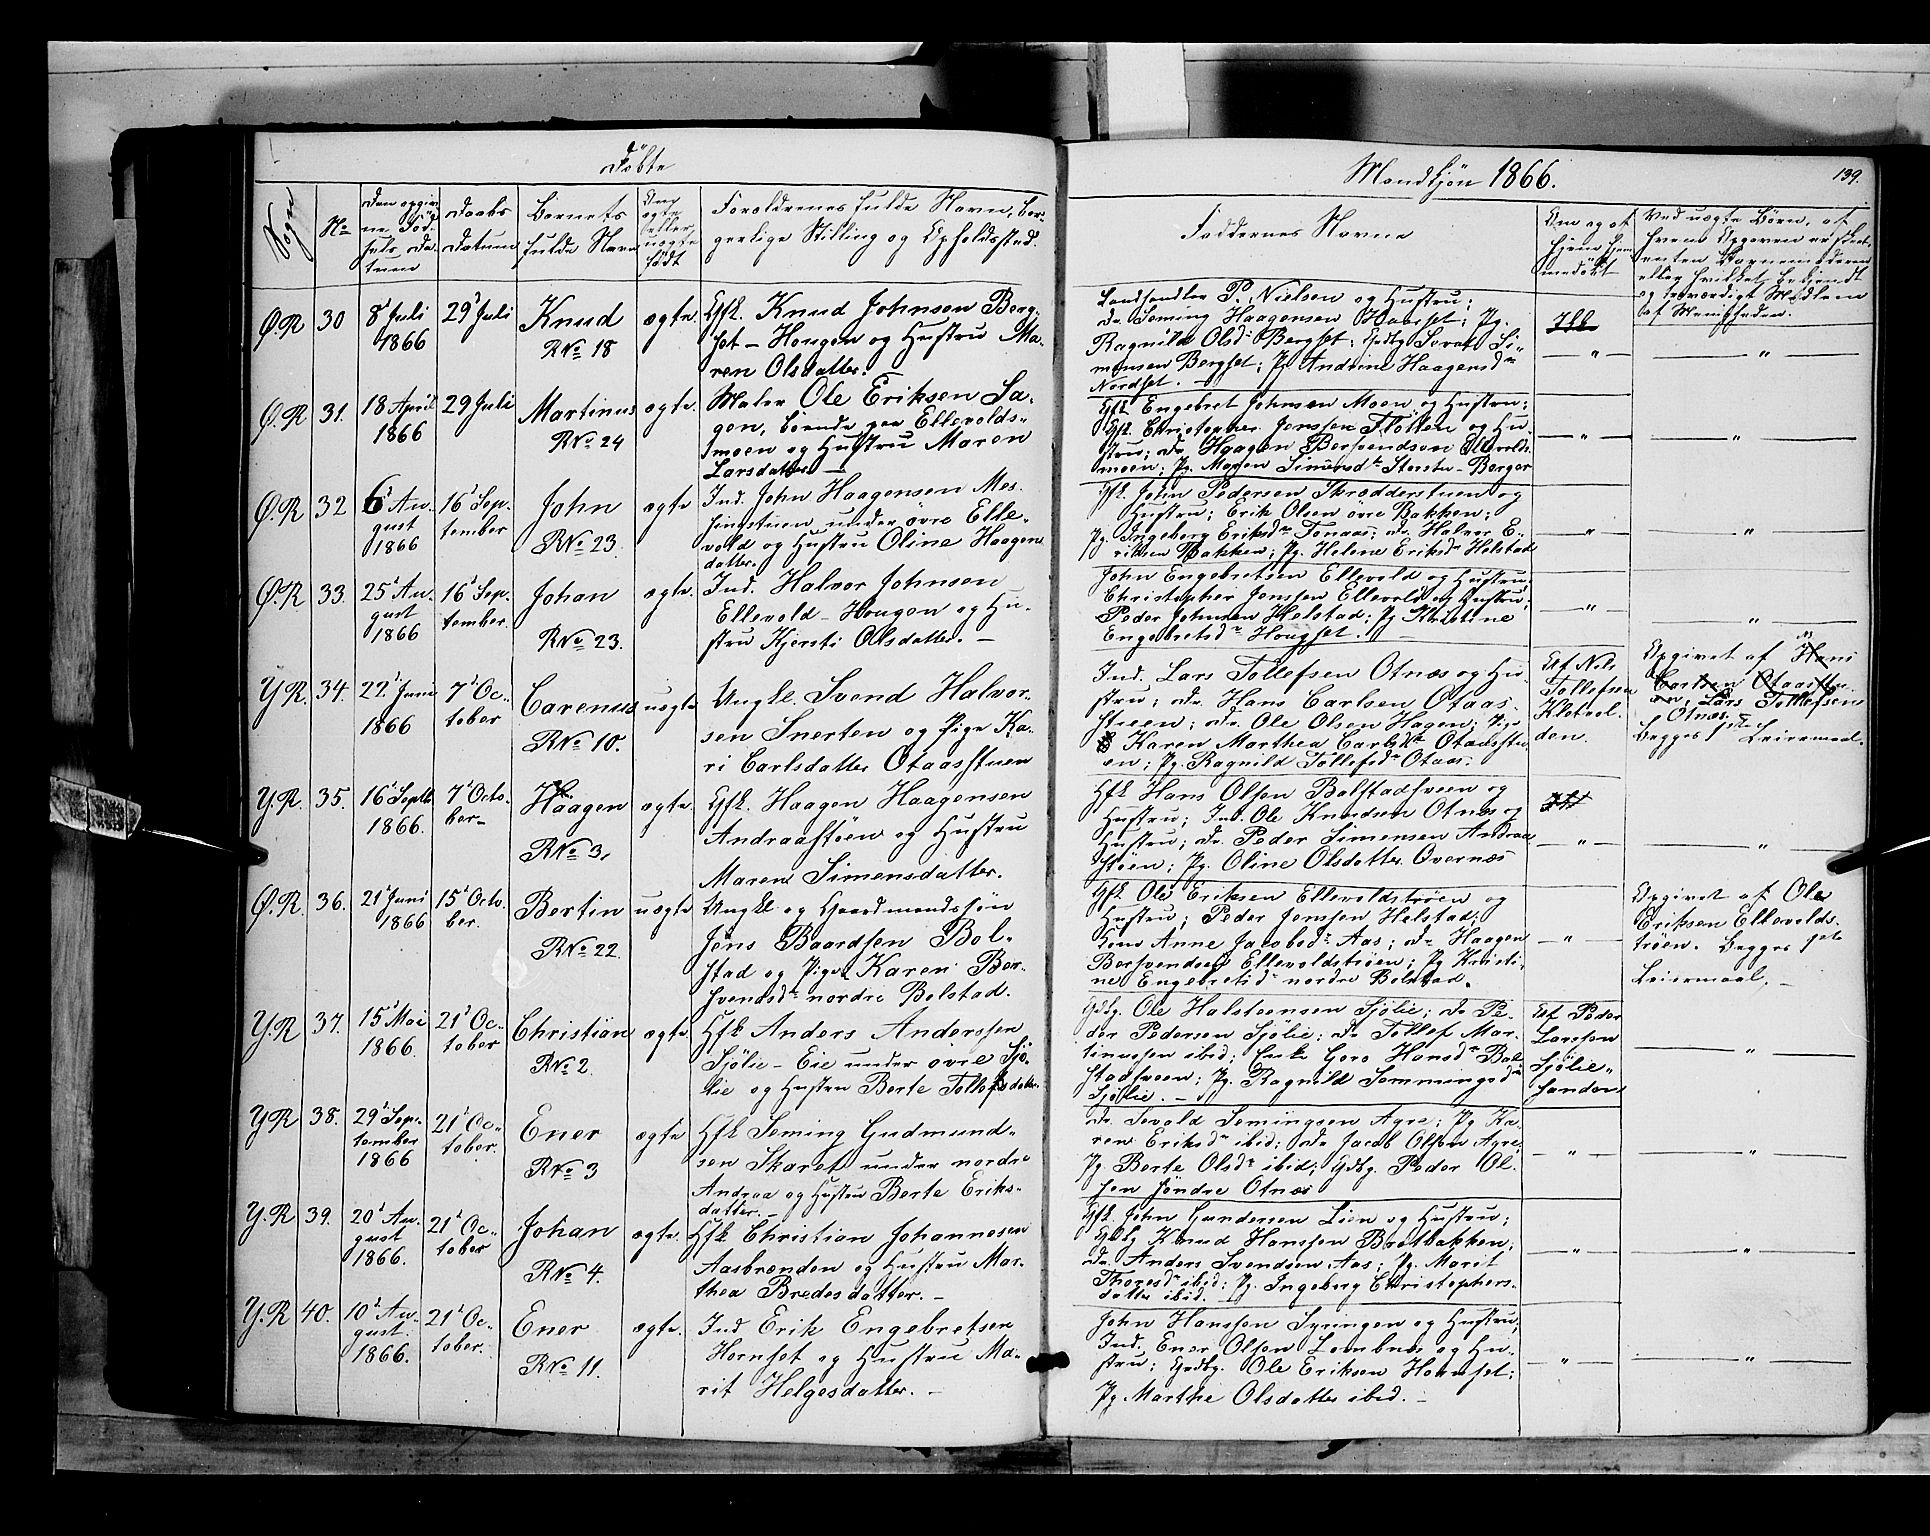 Døbte
Mandkjøn 1866.
139.
Sogn
No
Den opgiv-
ne Föd-
sels Da-
tum
Daabs
Datum
Barnets
fulde Navn
Om
ægte
eller
uægte
født
Forældrenes fulde Navn, bor-
gerlige Stilling og Opholdssted.
Faddernes Navne
Om og af
hjem
hjemmedøbt
Ved uægte Børn, af
hvem Opgaven er skeet
enten Barnemoderen
eller hvilket bekjendt
og troværdigt Medlem
af Menigheden.
Ø.R 30 8de Juli 1866 29de Juli Knud RNo 18 ægte
Gfk. Knud Johnsen Berg-
set-Haugen og Hustru Ma-
ren Olsdatter.
Landhandler P. Nielsen og Hustru;
Dr. Seming Haagensen Haarset; Pg.
Ragnild Olsdr Bergset; Gdbg Sivert Si-
monsen Bergset; Pg Andrine Haagensdr
Nordset. —
Ø.R 31. 18 April 1866 29 Juli Martinus RNo 24 ægte
Maler Ole Eriksen Sa-
gen, boende paa Ellevolds-
moen og Hustru Maren
Larsdatter —
Gfk Engebret Johnsen Moen og Hustru;
Gfk. Christopher Jenssen Floten og Hu-
stru; Dr Haagen Bersvendsen Ellevolds-
moen; Pg. Maren Simensdr Storstu-Berger
Ø.R 32 6te Au-
gust 1866 16de Sep-
tember John RNo 23. ægte
Ind. John Haagensen Mes-
singstuen under övre Elle-
vold og Hustru Oline Haagens-
datter.
Gfk. John Pedersen Skrædderstuen og
Hustru; Erik Olsen övre Bakken;
Pg. Ingeborg Eriksdr Tonaas; Dr Halvor E-
riksen Bakken; Pg. Helene Eriksdr Helstad
Ø.R 33. 25de Au-
gust 1866 16de Sep-
tember. Johan RNo 23. ægte.
Ind. Halvor Johnsen
Ellevold-Haugen og Hu-
stru Kjersti Olsdatter. —
John Engebretsen Ellevold og Hustru;
Christopher Jenssen Ellevold og Hustru;
Peder Johnsen Helstad; Pg Kristine
Engebretsdr Haugset.
Y.R. 34. 22de Juni 1866 7de Oc-
tober Carenus RNo 10. uægte
Ungkl. Svend Halvor-
sen Snerten og Pige Ka-
ri Carlsdatter Otaasstuen
Ind. Lars Tollefsen Otnæs og Hu-
stru; Dr. Hans Carlsen Otaas-
stuen; Dr. Ole Olsen Hagen; Pige
Karen Marthea Carlsdr Otaasstu-
en; Pg. Ragnild Tollefsdr Otaas.
Af Nils
Tollefsen
Kletvol-
den.
Opgivet af Hans
Carlsen Otaasstu-
en, Lars Tollefsen
Otnæs.
Begges 1ste Leiermaal.
Y.R. 35. 16de Septb 1866. 7de Octo-
ber- Haagen RNo 3, ægte
Gfk. Haagen Haagensen
Andraastöen og Hustru
Maren Simensdatter.
Gfk Hans Olsen Bolstadsveen og
Hustru; Ind. Ole Knudsen Otnæs og
Hustru; Dr. Peder Simensen Andraa-
stöen; Pg. Oline Olsdatter Overnæs
Ø.R. 36. 21de Juni 1866 15de Octo-
ber. Bertin RNo 22. uægte
Ungkl. og Gaardmandssön
Jens Baardsen Bol-
stad og Pige Karen Ber-
svendsdr nordre Bolstad.
Gfk Ole Eriksen Ellevoldströen og
Hustru; Peder Jenssen Helstad;
Kone Anne Jacobsdr Aas; Dr Haagen
Bersvendsen Ellevoldströen; Pg Kristi-
ne Engebretsdr nordre Bolstad.
Opgivet af Ole
Eriksen Ellevolds-
tröen. Begges 1ste
Leiermaal. —
Y.R 37. 15de Mai 1866. 21de Oc-
tober Christian RNo 2. ægte.
Gfk Anders Anderssen
Sjölie-Eie under övre Sjö-
lie og Hustru Berte Tollefsdatter.
Gdbg. Ole Halsteensen Sjölie; Dr Pe-
der Pedersen Sjölie; Dr Tollef Mar-
tinussen ibid; Enke Goro Hansdr Bol-
stadsveen; Pg. Ragnild Semmingsdr
Sjölie. —
Af Peder
Larssen
Sjölie-
sanden
Y.R 38. 29de Sep-
tember 1866 21de Oc-
tober. Ener RNo 3 ægte
Gfk Seming Gudmund-
sen Skaret under nordre
Andraa og Hustru Berte Eriks-
datter. —
Dr. Sevald Semingsen Agre; Pg Ka-
ren Eriksdr ibid; Dr Jacob Olsen Agre;
Pg Berte Olsdr ibid; Gdbg. Peder Ol-
sen söndre Otnæs
Y.R 39. 20de Au-
gust 1866. 21de Oc-
tober Johan RNo 4. ægte.
Gfk Christian Johannesen
Aasbrænden og Hustru Mar-
thea Bredesdatter. —
Gfk. John Gundersen Lien og Hustru;
Gdbg Knud Hanssen Bratbakken;
Dr. Anders Svendsen Aas; Pg. Marit
Thoresdr ibid; Pg. Ingeborg Christophers-
datter ibid. —
Y.R 40. 10de Au-
gust. 1866. 21de Oc-
tober. Ener RNo 11. ægte.
Ind Erik Engebretsen
Hornset og Hustru Ma-
rit Helgesdatter. —
John Hanssen Syringen og Hustru;
Ind. Ener Olsen Lombnæs og Hu-
stru; Gdbg. Ole Eriksen Hornset;
Pg Marthe Olsdatter ibid. —